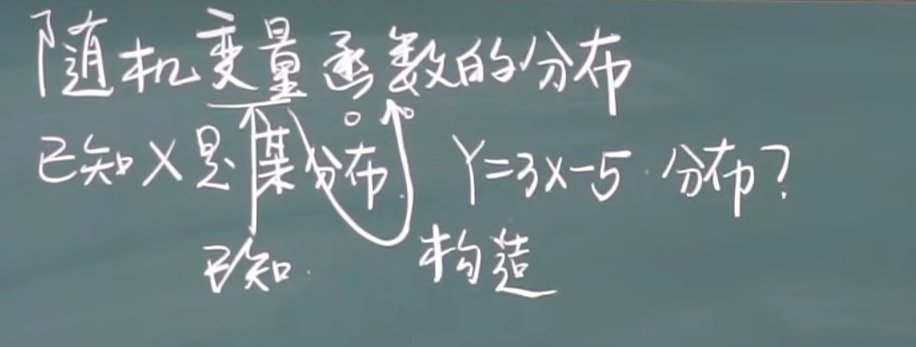 随机变量函数的分布
已知X是某分布 Y=3x-5 分布?
已知 构造